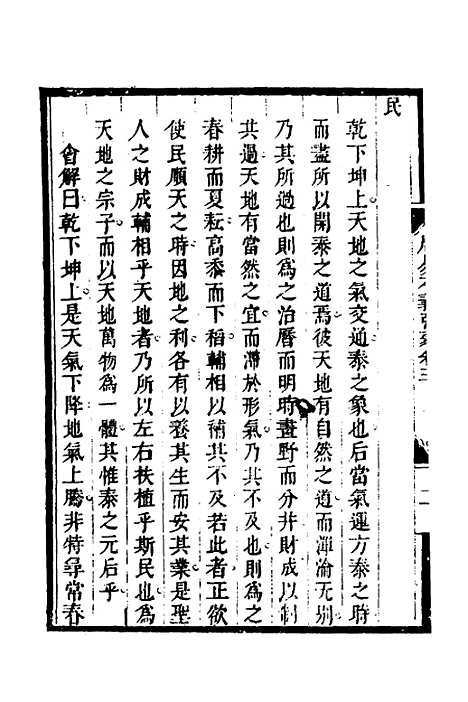 民
乾下坤上天地之氣交通泰之象也后當氣運方泰之時
而盡所以開泰之道焉彼天地有自然之道而渾淪无别
乃其所過也則為之治曆而明時畫野而分井財成以制
其過天地有當然之宜而滯於形氣乃其不及也則為之
春耕而夏耘高黍而下稻輔相以補其不及若此者正欲
使民順天之時因地之利各有以養其生而安其業是聖
人之財成輔相乎天地者乃所以左右扶植乎斯民也為
天地之宗子而以天地萬物為一體其惟泰之元后乎
會解曰乾下坤上是天氣下降地氣上騰非特尋常春